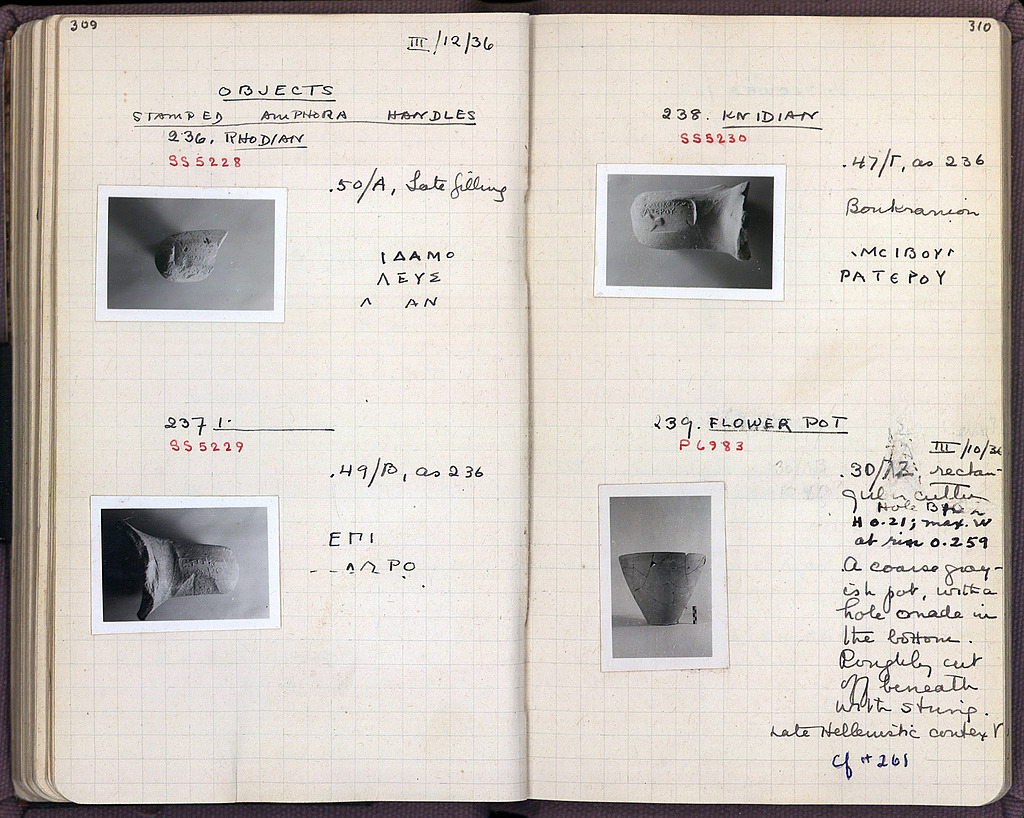 309
III/12/36
OBJECTS
STAMPED AMPHORA HANDLES
236. RHODIAN
SS5228
.50/Α, Late filling
ΙΔΑΜΟ
ΛΕΥΣ
Λ ΑΝ
237
SS5229
.49/Β, as 236
ΕΠΙ
ΡΟ
310
238. KNIDIAN
SS5230
.47/Γ, as 236
Boukranion
ΜCΙΒΟΥ
ΡΑΤΕΡΟΥ
239. FLOWER POT
P6983
III/10/36
rectan-
gular cutter
Hole
H 0.21; max. W
at rim 0.259
A coarse gray-
ish pot, with a
hole made in
the bottom.
Roughly cut
off beneath
with string.
Late Hellenistic context
cf # 261